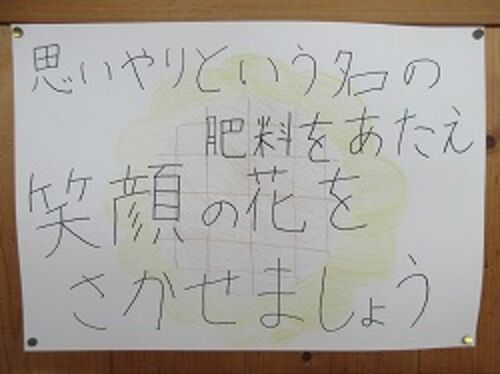 思いやりという名の
肥料をあたえ
笑顔の花を
さかせましょう